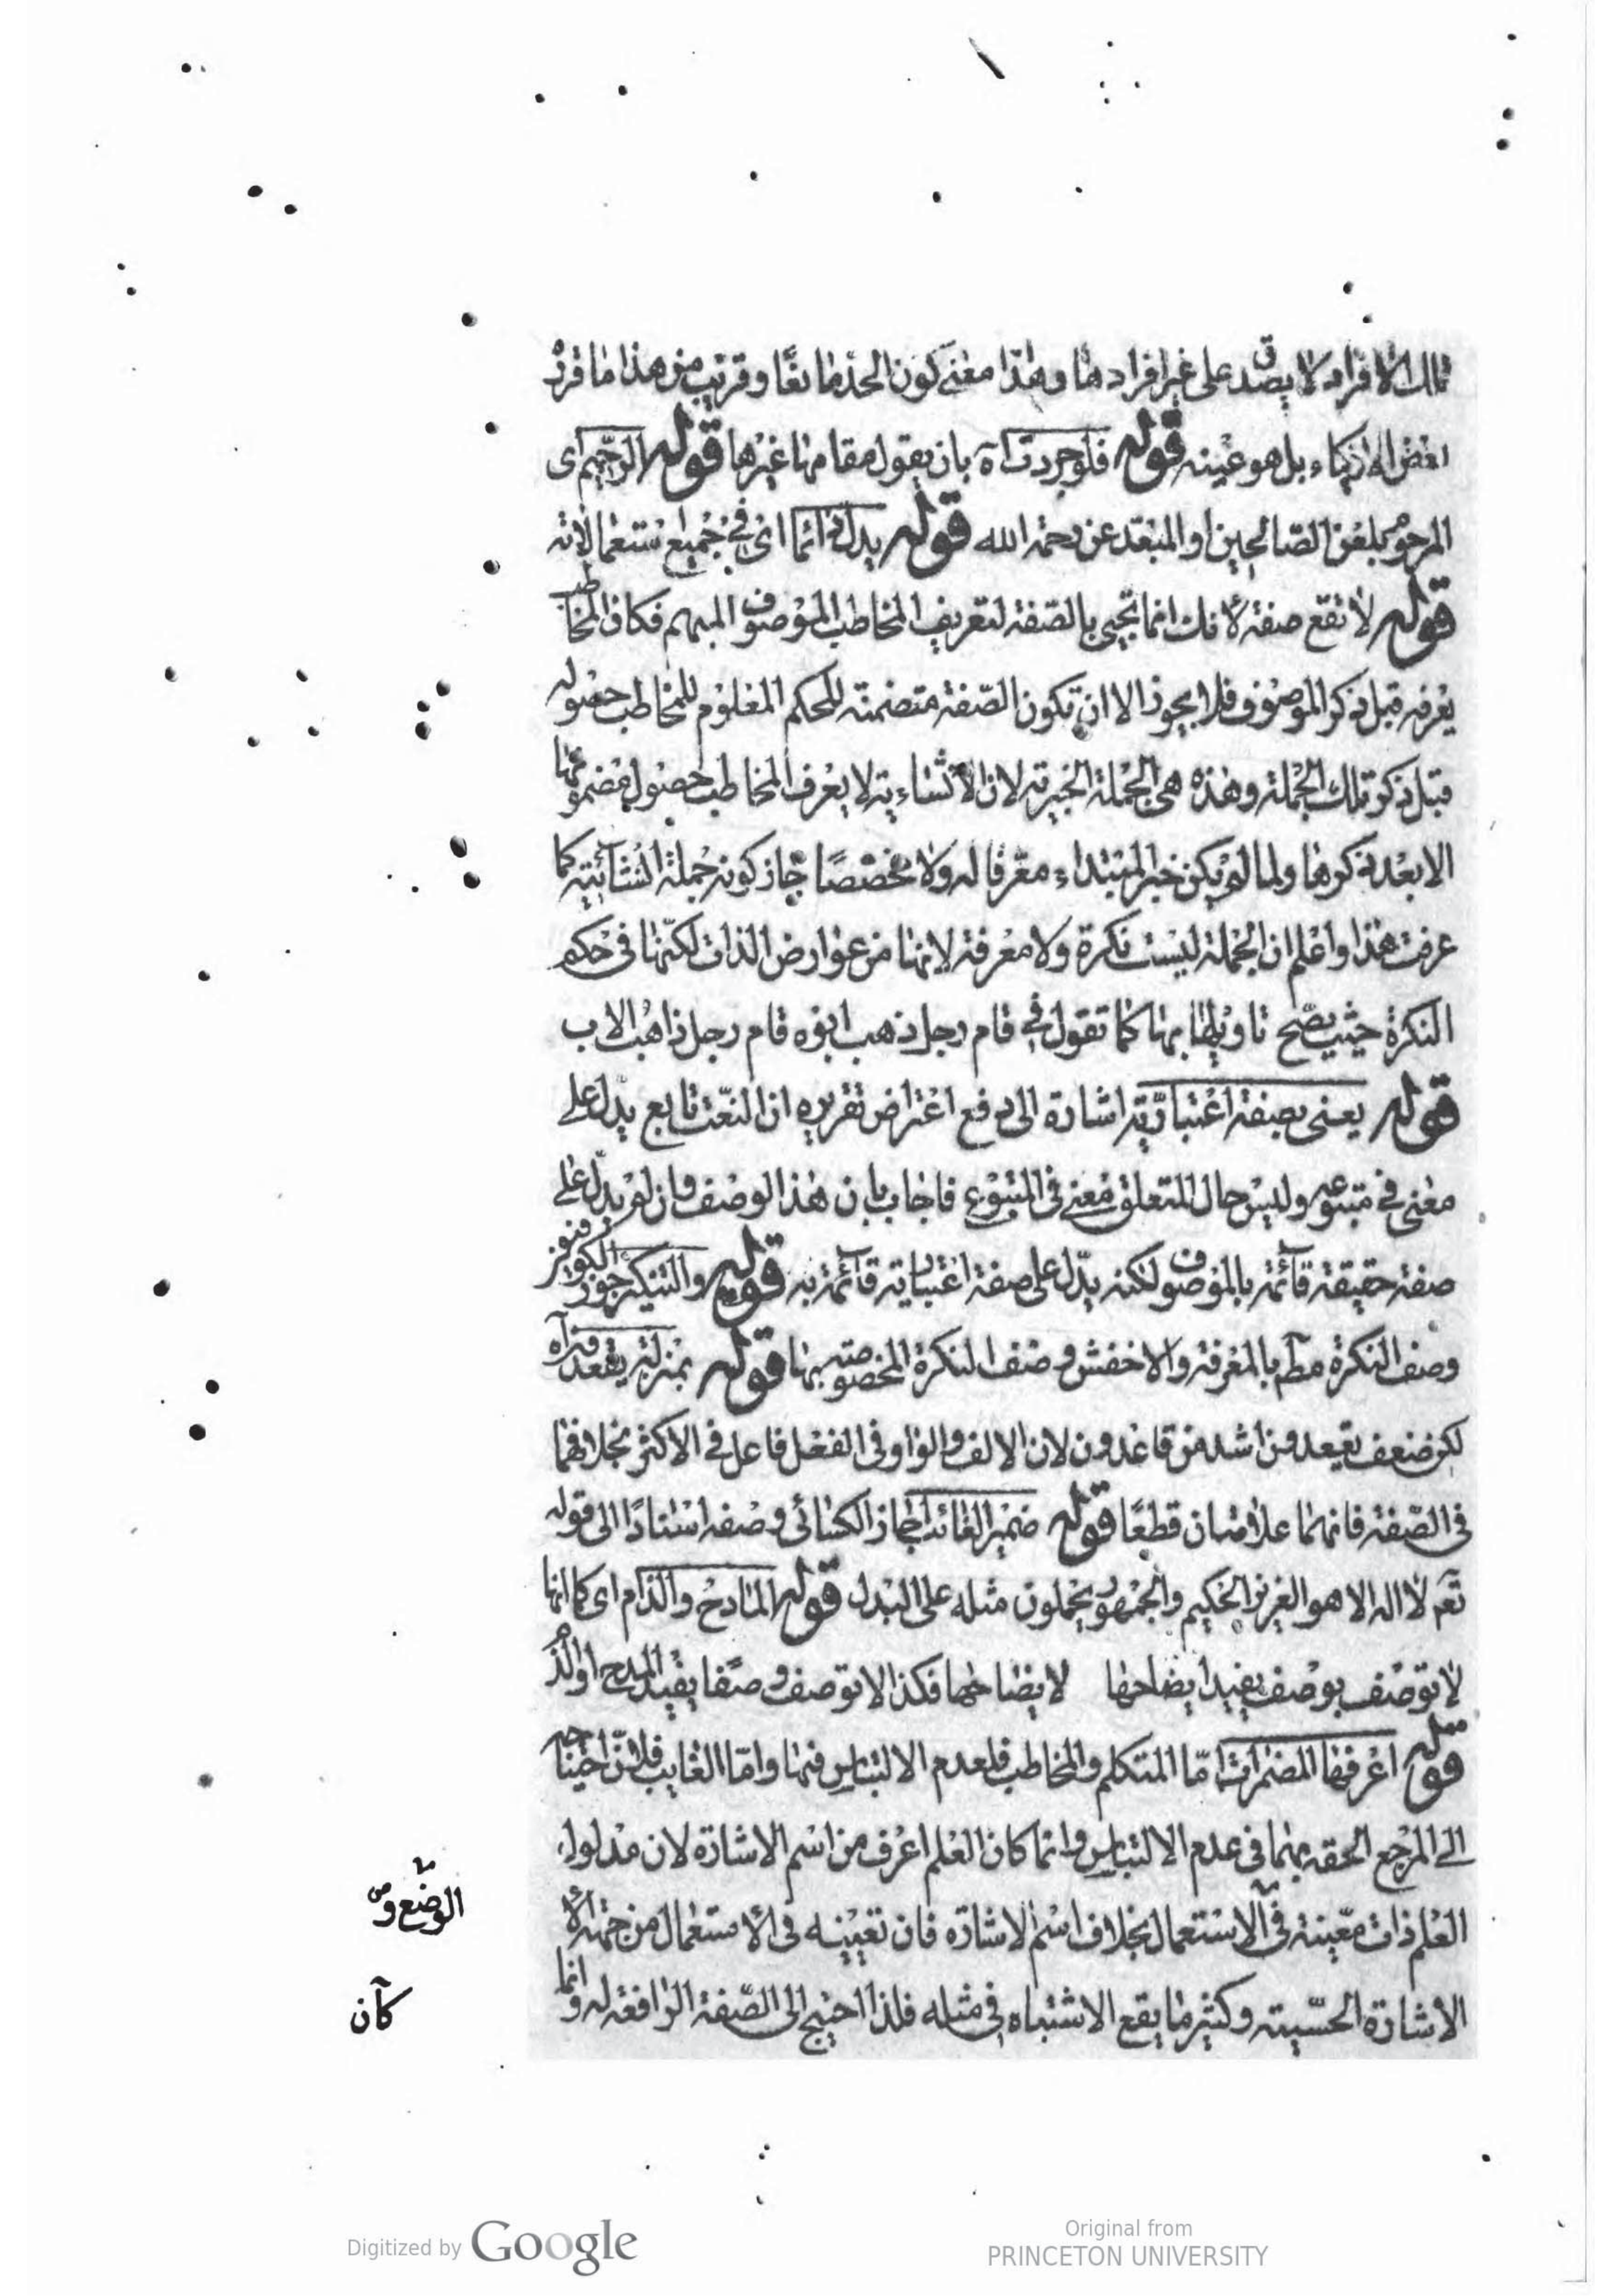 تلك الافراد لا يصدق على غير افرادها وهذا معنى كون الحد مانعا وقريب من هذا ما قرر
بعض الاذكياء بل هو عينه قوله فلو جردت اه بان يقول مقامها غيرها قوله الرجيم اى
المرجوم بلعن الصالحين او المبعد عن رحمة الله قوله يدل دائما اى فى جميع استعمالاته
قوله لا تقع صفة لانك انما تجيى بالصفة لتعريف المخاطب الموصوف المبهم فكان المخاطب
يعرفه قبل ذكر الموصوف فلا يجوز الا ان تكون الصفة متضمنة للحكم المعلوم للمخاطب حصوله
قبل ذكر تلك الجملة وهذه هى الجملة الخبرية لان الانشاءية لا يعرف المخاطب حصول مضمونها
الا بعد ذكرها ولما لم يكن خبر المبتداء معرفا له ولا مخصصا جاز كونه جملة انشائية كما
عرفت هذا واعلم ان الجملة ليست نكرة ولا معرفة لانها من عوارض الذات لكنها فى حكم
النكرة حيث يصح تاويلها بها كما تقول فى قام رجل ذهب ابوه قام رجل ذاهب الاب
قوله يعنى بصفة اعتبارية اشارة الى دفع اعتراض تقريره ان النعت تابع يدل على
معنى فى متبوعه وليس حال المتعلق معنى فى المتبوع فاجاب بان هذا الوصف وان لم يدل على
صفة حقيقة قائمة بالموصوف لكنه يدل على صفة اعتبارية قائمة به قوله والتنكير جوز الكوفيون
وصف النكرة مطم بالمعرفة والاخفش وصف النكرة المخصوصة بها قوله بمنزلة يقعد
لكن ضعف يقعدون اشد من قاعدون لان الالف والواو فى الفعل فاعل فى الاكثر بخلافهما
فى الصفة فانهما علامتان قطعا قوله ضمير الغائب اجاز الكسائى وصفه استنادا الى قوله
تعم لا اله الا هو العزيز الحكيم والجمهور يحملون مثله على البدل قوله المادح والذام اى كما انها
لا توصف بوصف يفيد ايضاحها لا يضاحها فكذا لا توصف وصفا يفيد المدح او الذم
قوله اعرفها المضمرات اما المتكلم والمخاطب فلعدم الالتباس فيهما واما الغايب فلان احتياجه
الى المرجع الحقه بهما فى عدم الالتباس وانما كان العلم اعرف من اسم الاشارة لان مدلول
العلم ذات معينة فى الاستعمال بخلاف اسم الاشارة فان تعيينه فى الاستعمال من جهة
الاشارة الحسية وكثير ما يقع الاشتباه فى مثله فلذا احتيج الى الصفة الرافعة له وانما
الوضع و
كان
Digitized by Google
Original from
PRINCETON UNIVERSITY